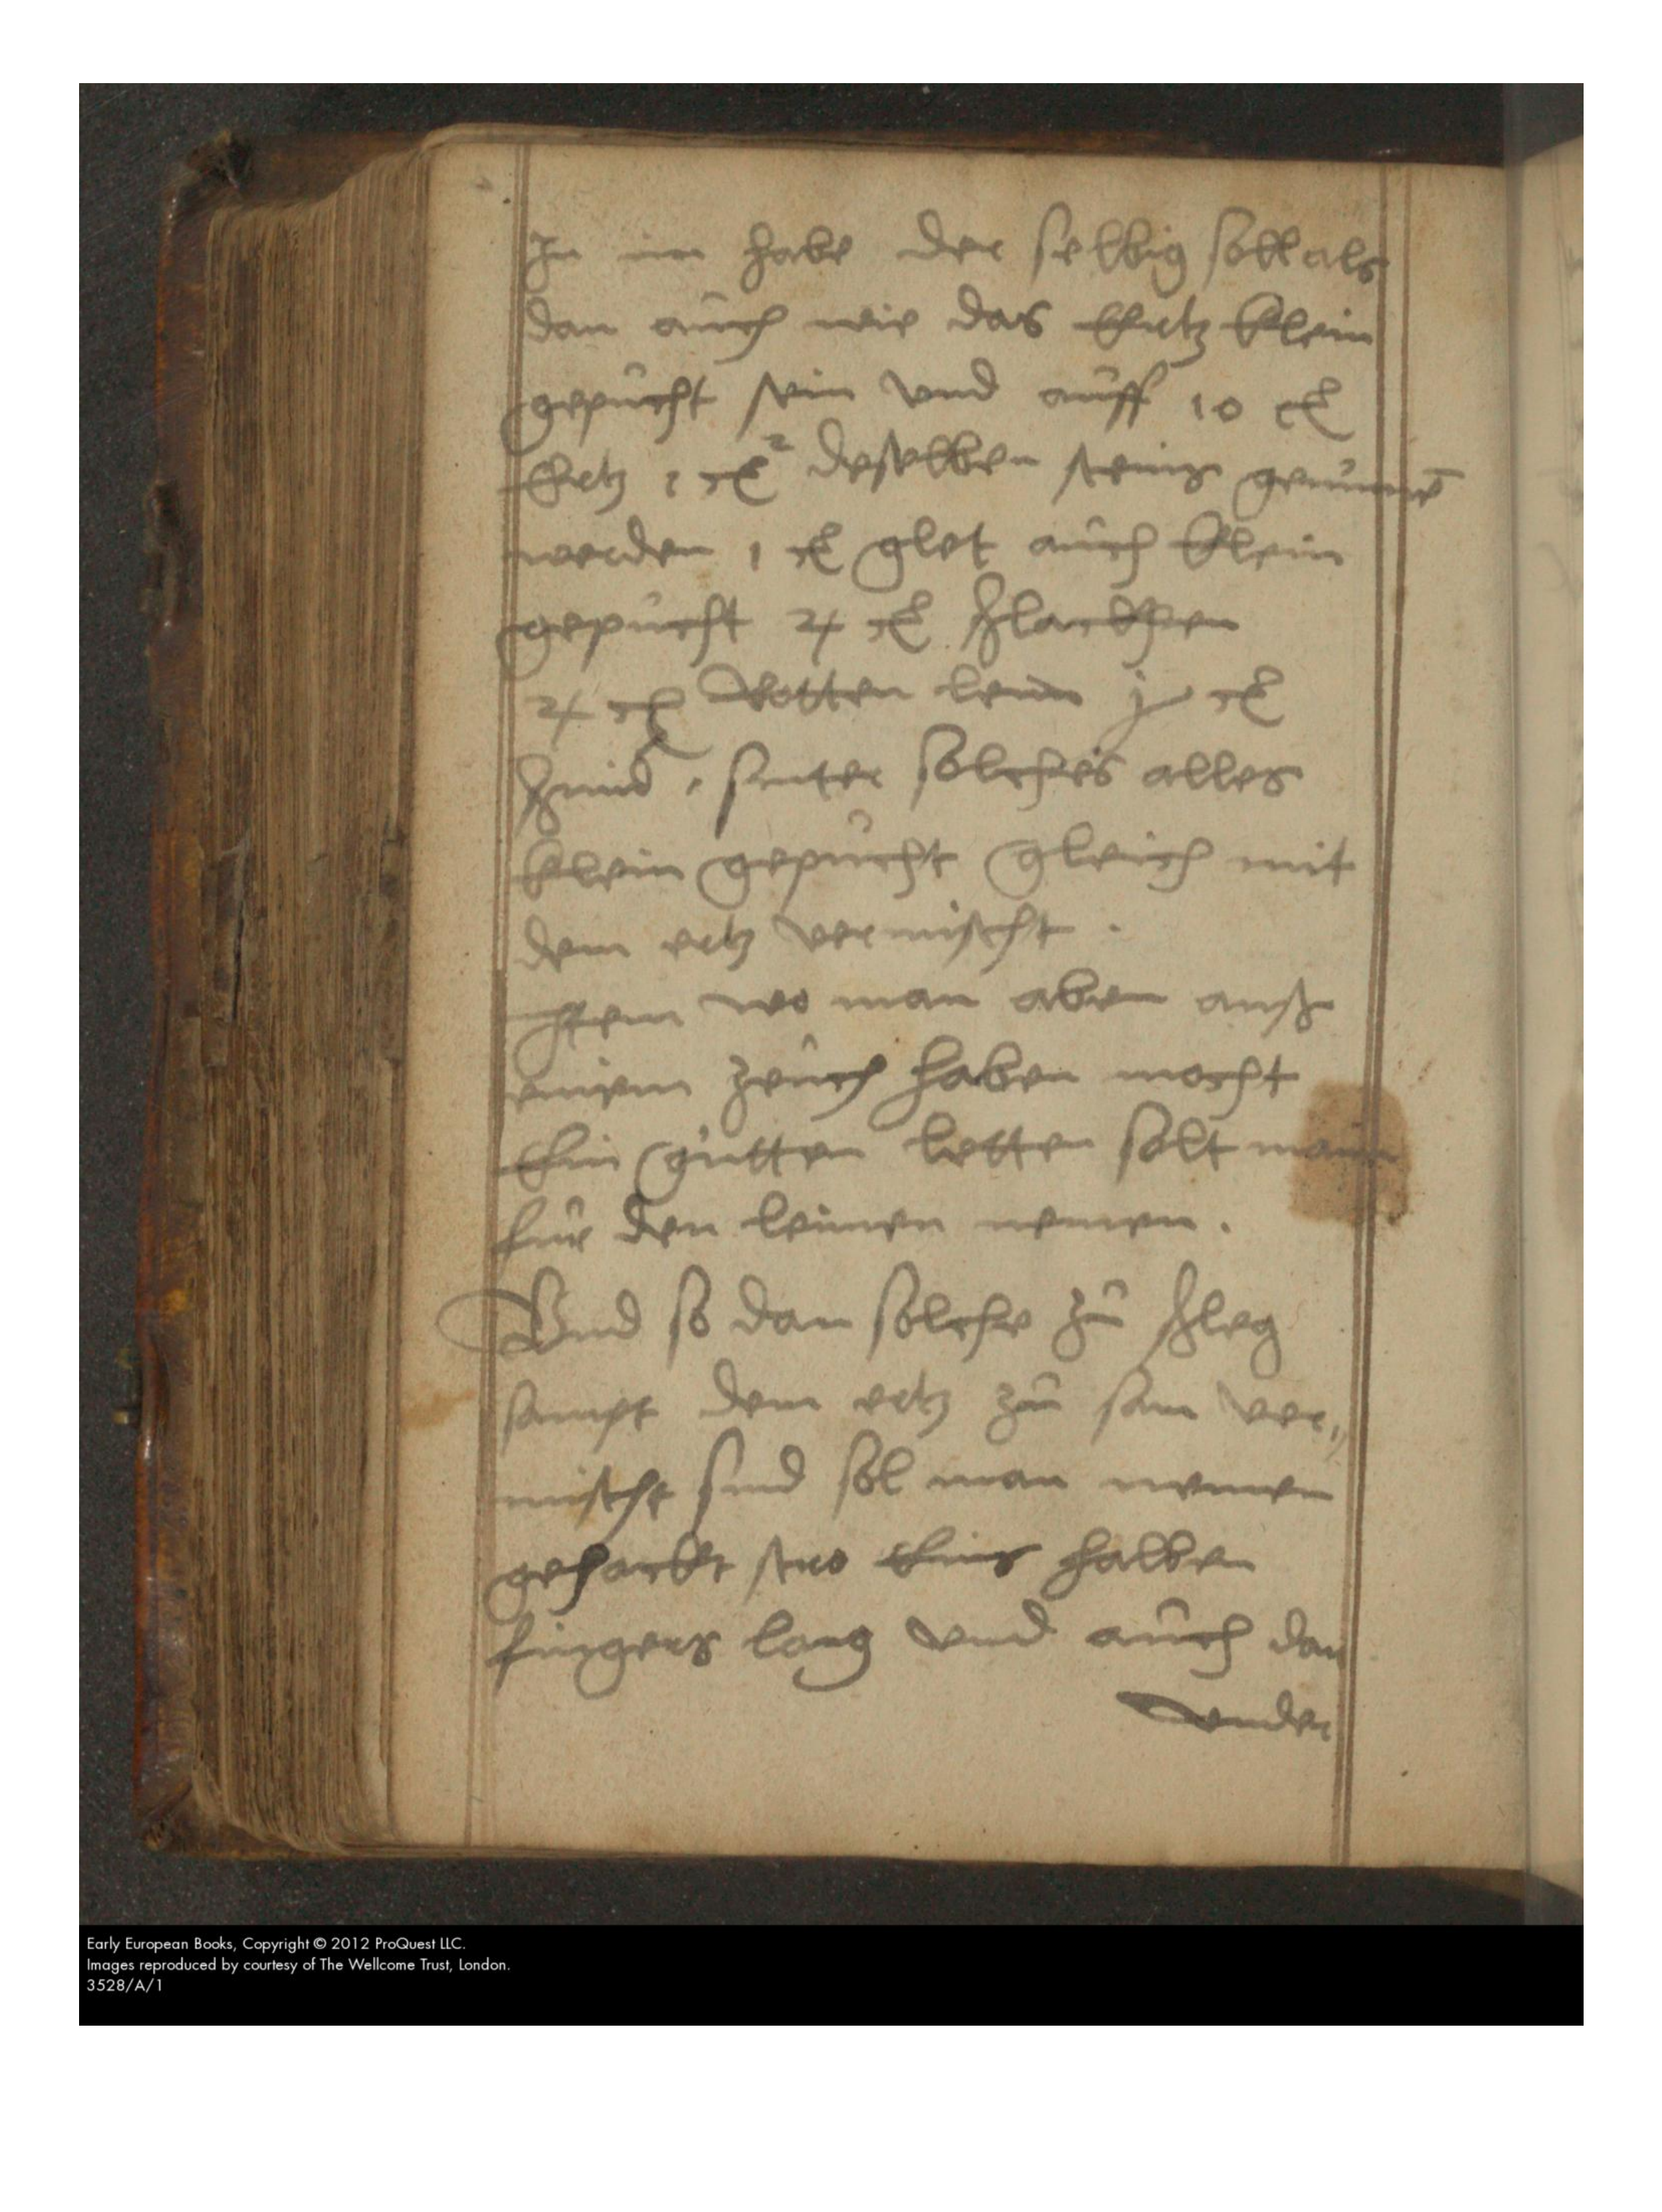 In im habe der selbig soll als
dan auch wie das Ertz klein
gepucht sein vnd auff 10 ℔
Ertz 1 ℔ deselben steins genumē
werden 1 ℔ glet auch klein
gepucht 4 ℔
4 ℔ Rotten leim ℔
sinter solches alles
klein gepucht gleich mit
dem ertz vermischt .
Item wo man aben auß
einem zeuch haben mocht
Ein gutten letten solt man
fur den leimen nemen .
Vnd so dan solche zu schleg
sampt dem ertz zu sam ver„
mischt sind sol man nemen
gehackt stro Eins halben
fingers lang vnd auch dan
vnder
Early European Books, Copyright © 2012 ProQuest LLC.
Images reproduced by courtesy of The Wellcome Trust, London.
3528/A/1